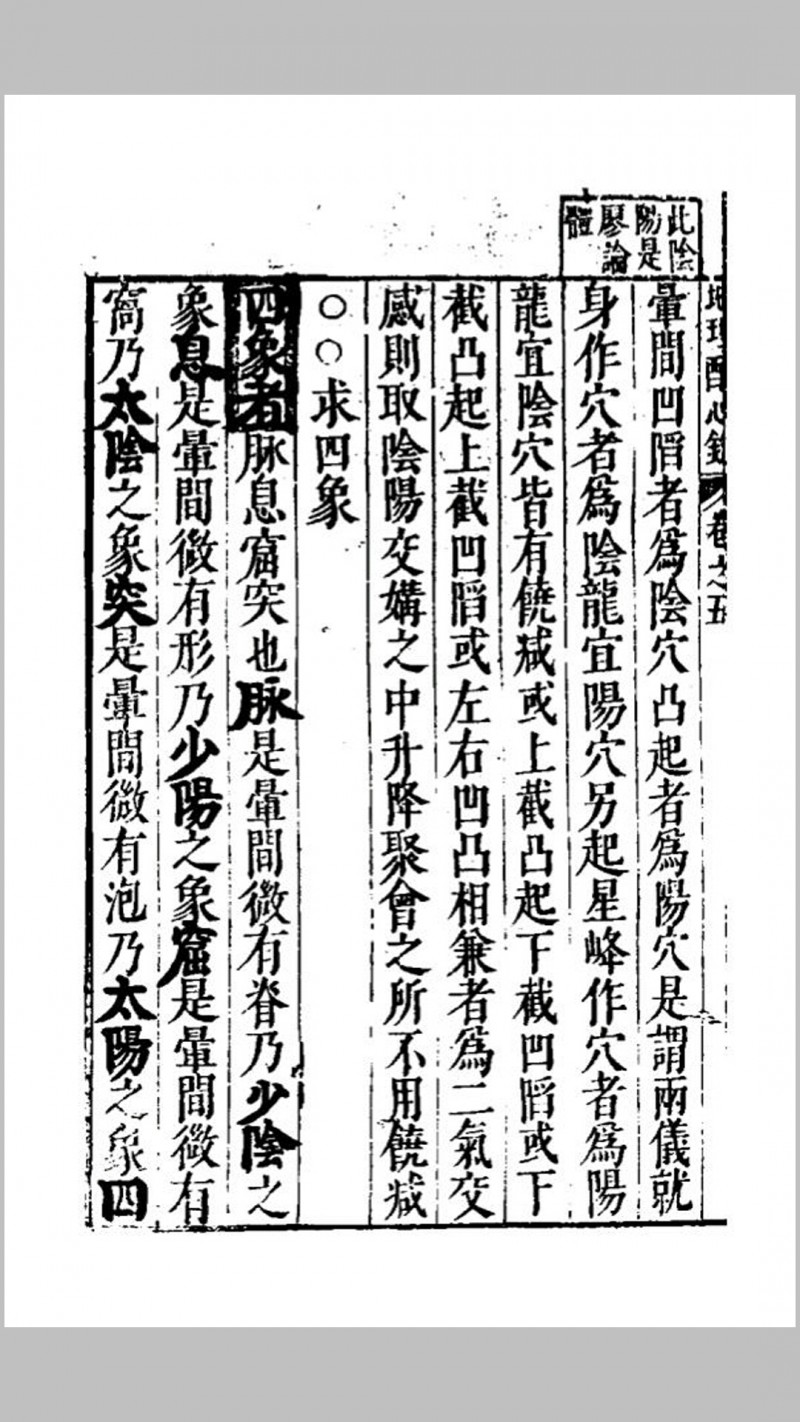 地理醒心錄 卷之五
此陰
陽是
廖論
體
暈間凹䧟者爲陰穴凸起者爲陽穴是謂兩儀就
身作穴者爲陰龍宜陽穴另起星峰作穴者爲陽
龍宜陰穴皆有饒减或上截凸起下截凹䧟或下
截凸起上截凹䧟或左右凹凸相兼者爲二氣交
感則取陰陽交媾之中升降聚會之所不用饒减
○○求四象
四象者脉息窟突也脉是暈間微有脊乃少陰之
象息是暈間微有形乃少陽之象窟是暈間微有
窩乃太陰之象突是暈間微有泡乃太陽之象四